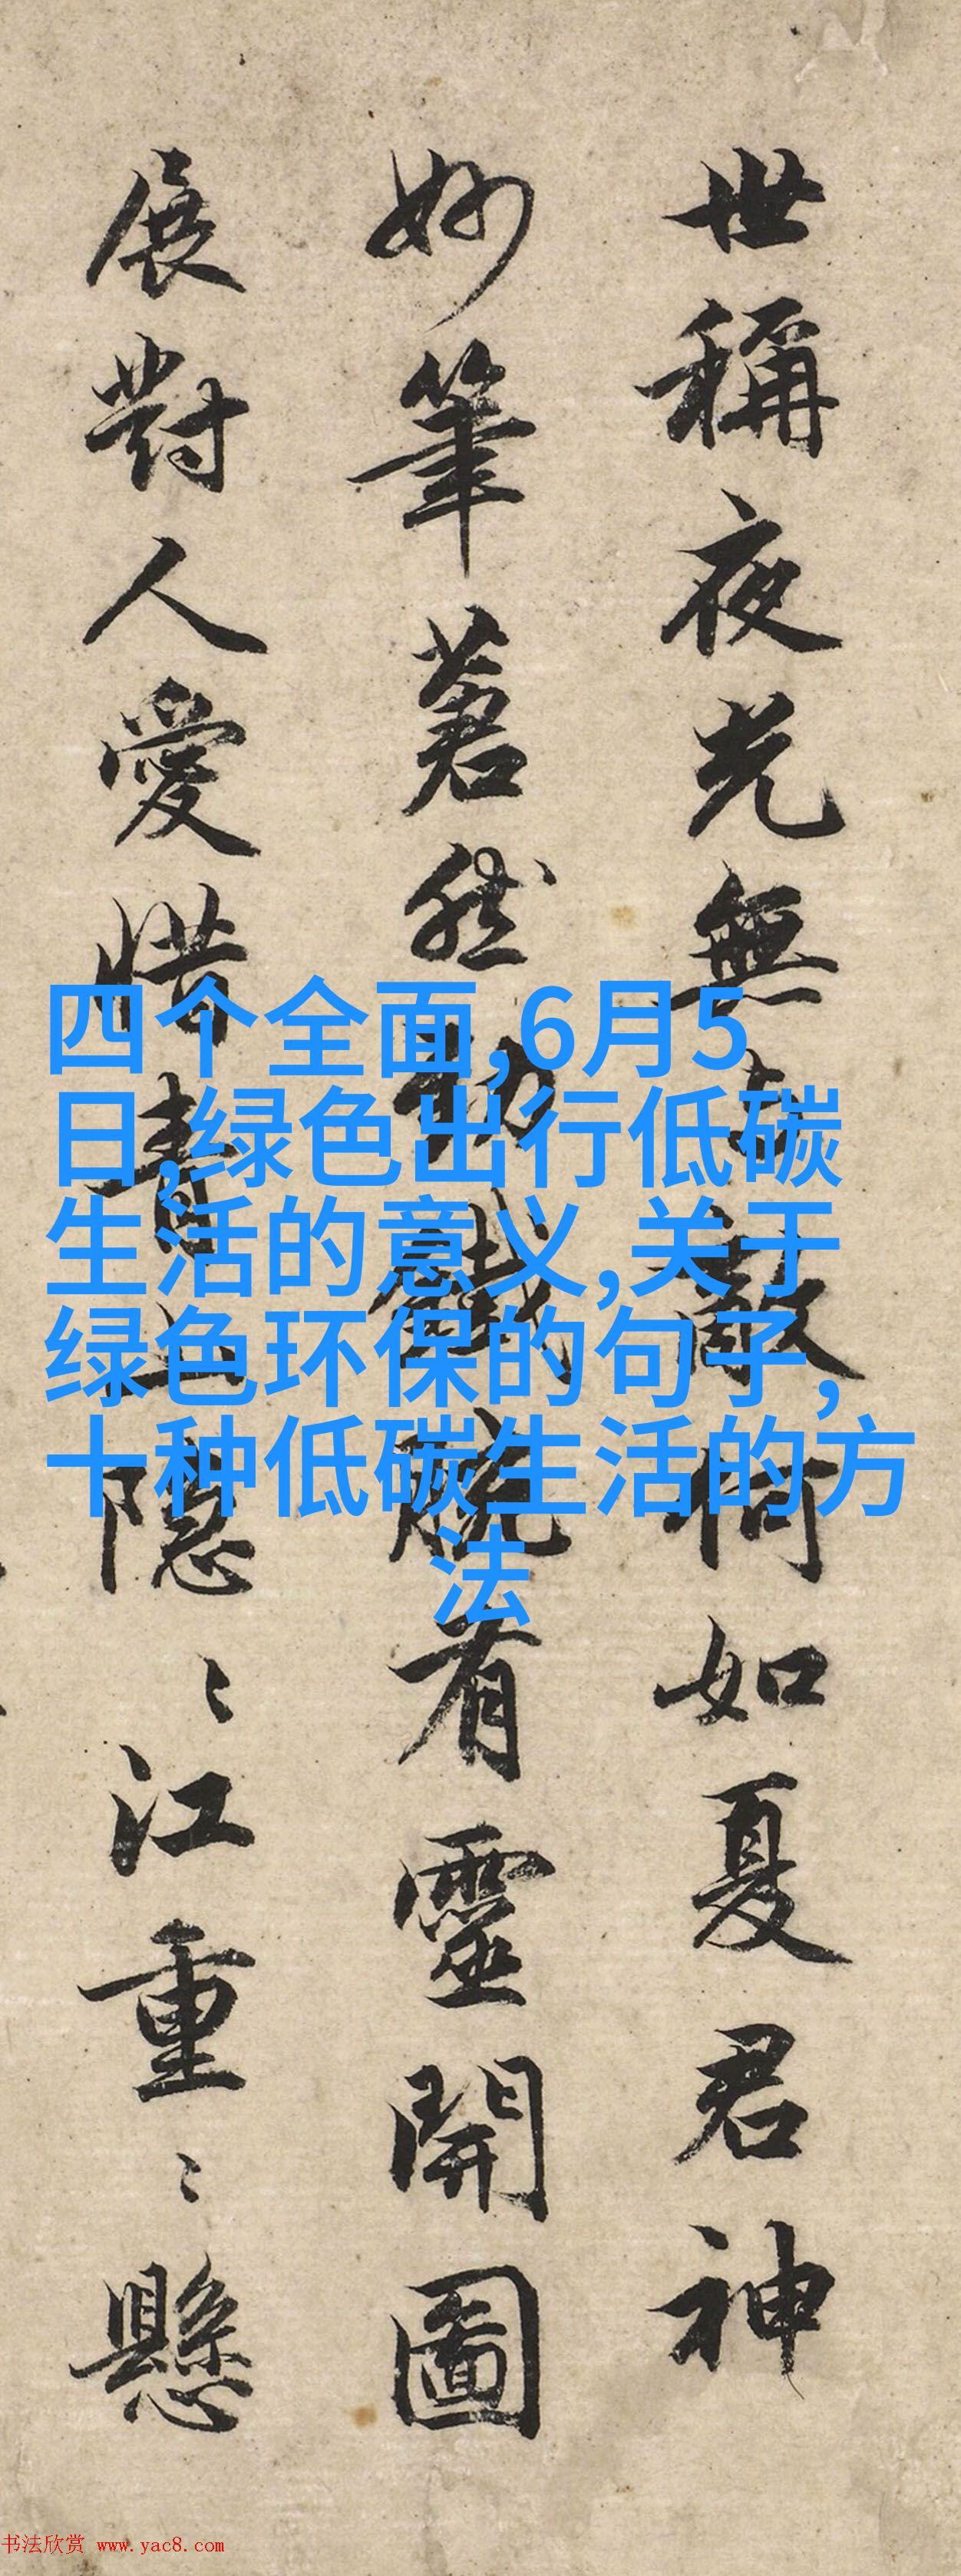 世稱夜光無敵如夏君神
妙筆然有靈開圖
展對人愛惜青山隱〻江重〻懸
四个全面,6月5
日,绿色出行低碳
生活的意义,关于
绿色环保的句子,
十种低碳生活的方
法
书法欣赏 www.yac8.com